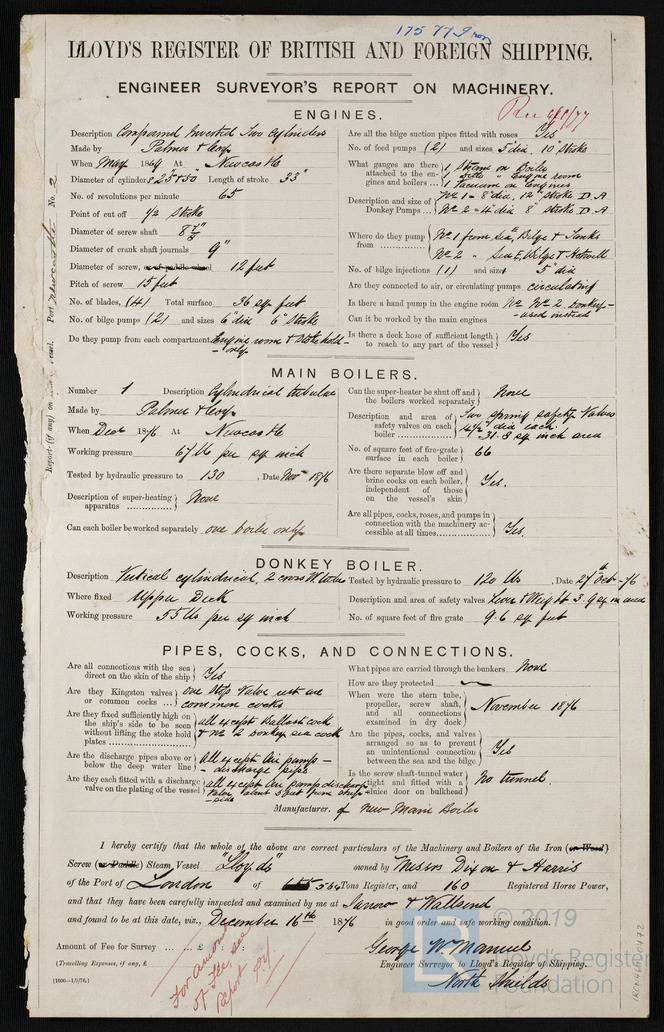 17577 Iron
LLOYD'S REGISTER OF BRITISH AND FOREIGN SHIPPING.
ENGINEER SURVEYOR'S REPORT ON MACHINERY.
ENGINES.
Description Compound Inverted Two Cylinders
Made by Palmer & Coy
When May 1869 At Newcastle
Diameter of cylinders 25" & 50" Length of stroke 33"
No. of revolutions per minute 65
Point of cut off 1/2 stroke
Diameter of screw shaft
Diameter of crank shaft journals 9"
Diameter of screw, or of paddle wheel 12 feet
Pitch of screw 15 feet
No. of blades, (4) Total surface 36 sq feet
No. of bilge pumps (2) and sizes 6" dia 6" Stroke
Do they pump from each compartment Engine room & Stokehold only
Are all the bilge suction pipes fitted with roses Yes
No. of feed pumps (2) and sizes 5" dia, 10" Stroke
What gauges are there attached to the engines and boilers ... 1 Steam on Boiler
1 ditto " Engine room
1 Vacuum on Engines
Description and size of Donkey Pumps ... No 1 = 8" dia, 12" stroke D.A
No 2 = 4" dia 8" stroke D.A
Where do they pump from No 1 from sea, Bilge & Tanks
No 2 " Sea, Bilge & Hotwell
No. of bilge injections (1) and sizes 5" dia
Are they connected to air, or circulating pumps circulating
Is there a hand pump in the engine room No No 2 donkey used instead
Can it be worked by the main engines
Is there a deck hose of sufficient length to reach to any part of the vessel Yes
Port Newcastle No. 2
MAIN BOILERS.
Number 1 Description Cylindrical tubular
Made by Palmer & Coy
When Dec 1876 At Newcastle
Working pressure 67 lbs per sq inch
Tested by hydraulic pressure to 130, Date Novr 1876
Description of super-heating apparatus None
Can each boiler be worked separately one boiler only
Can the super-heater be shut off and the boilers worked separately None
Description and area of safety valves on each boiler Two spring safety Valves
4 1/2" dia each.
= 31.8 sq inch area
No. of square feet of fire-grate surface in each boiler 66
Are there separate blow off and brine cocks on each boiler, independent of those on the vessel's skin Yes.
Are all pipes, cocks, roses, and pumps in connection with the machinery accessible at all times Yes.
DONKEY BOILER.
Description Vertical cylindrical, 2 cross Wtubes
Where fixed Upper Deck
Working pressure 55 lbs per sq inch
Tested by hydraulic pressure to 120 lbs, Date 27th Oct -76
Description and area of safety valves Lever & Weight 3.9 sq in area
No. of square feet of fire grate 9.6 sq feet
PIPES, COCKS, AND CONNECTIONS.
Are all connections with the sea direct on the skin of the ship Yes
Are they Kingston valves or common cocks ... one Stop Valve rest are common cocks
Are they fixed sufficiently high on the ship's side to be seen without lifting the stoke hold plates all except Ballast cock & No 2 donkey sea cock
Are the discharge pipes above or below the deep water line all except Air pump discharge pipe
Are they each fitted with a discharge valve on the plating of the vessel all except Air pump discharge
side
What pipes are carried through the bunkers None
How are they protected
When were the stern tube, propeller, screw shaft, and all connections examined in dry dock November 1876
Are the pipes, cocks, and valves arranged so as to prevent an unintentional connection between the sea and the bilge Yes
Is the screw shaft-tunnel water tight and fitted with a sluice door on bulkhead No tunnel.
Manufacturer. of New Main Boiler
I hereby certify that the whole of the above are correct particulars of the Machinery and Boilers of the Iron (or Wood)
Screw (or Paddle) Steam Vessel "Lloyds" owned by Messrs Dixon & Harris
of the Port of London of 556 Tons Register, and 160 Registered Horse Power,
and that they have been carefully inspected and examined by me at Jarrow & Wallsend
and found to be at this date, viz., December 16th 1876 in good order and safe working condition.
Amount of Fee for Survey ... ... £
(Travelling Expenses, if any, £
[1000—1/9/76.]
For amount of Fee see Report
George W. Manuel
Engineer Surveyor to Lloyd's Register of Shipping.
North Shields
© 2019
Lloyd's Register
Foundation